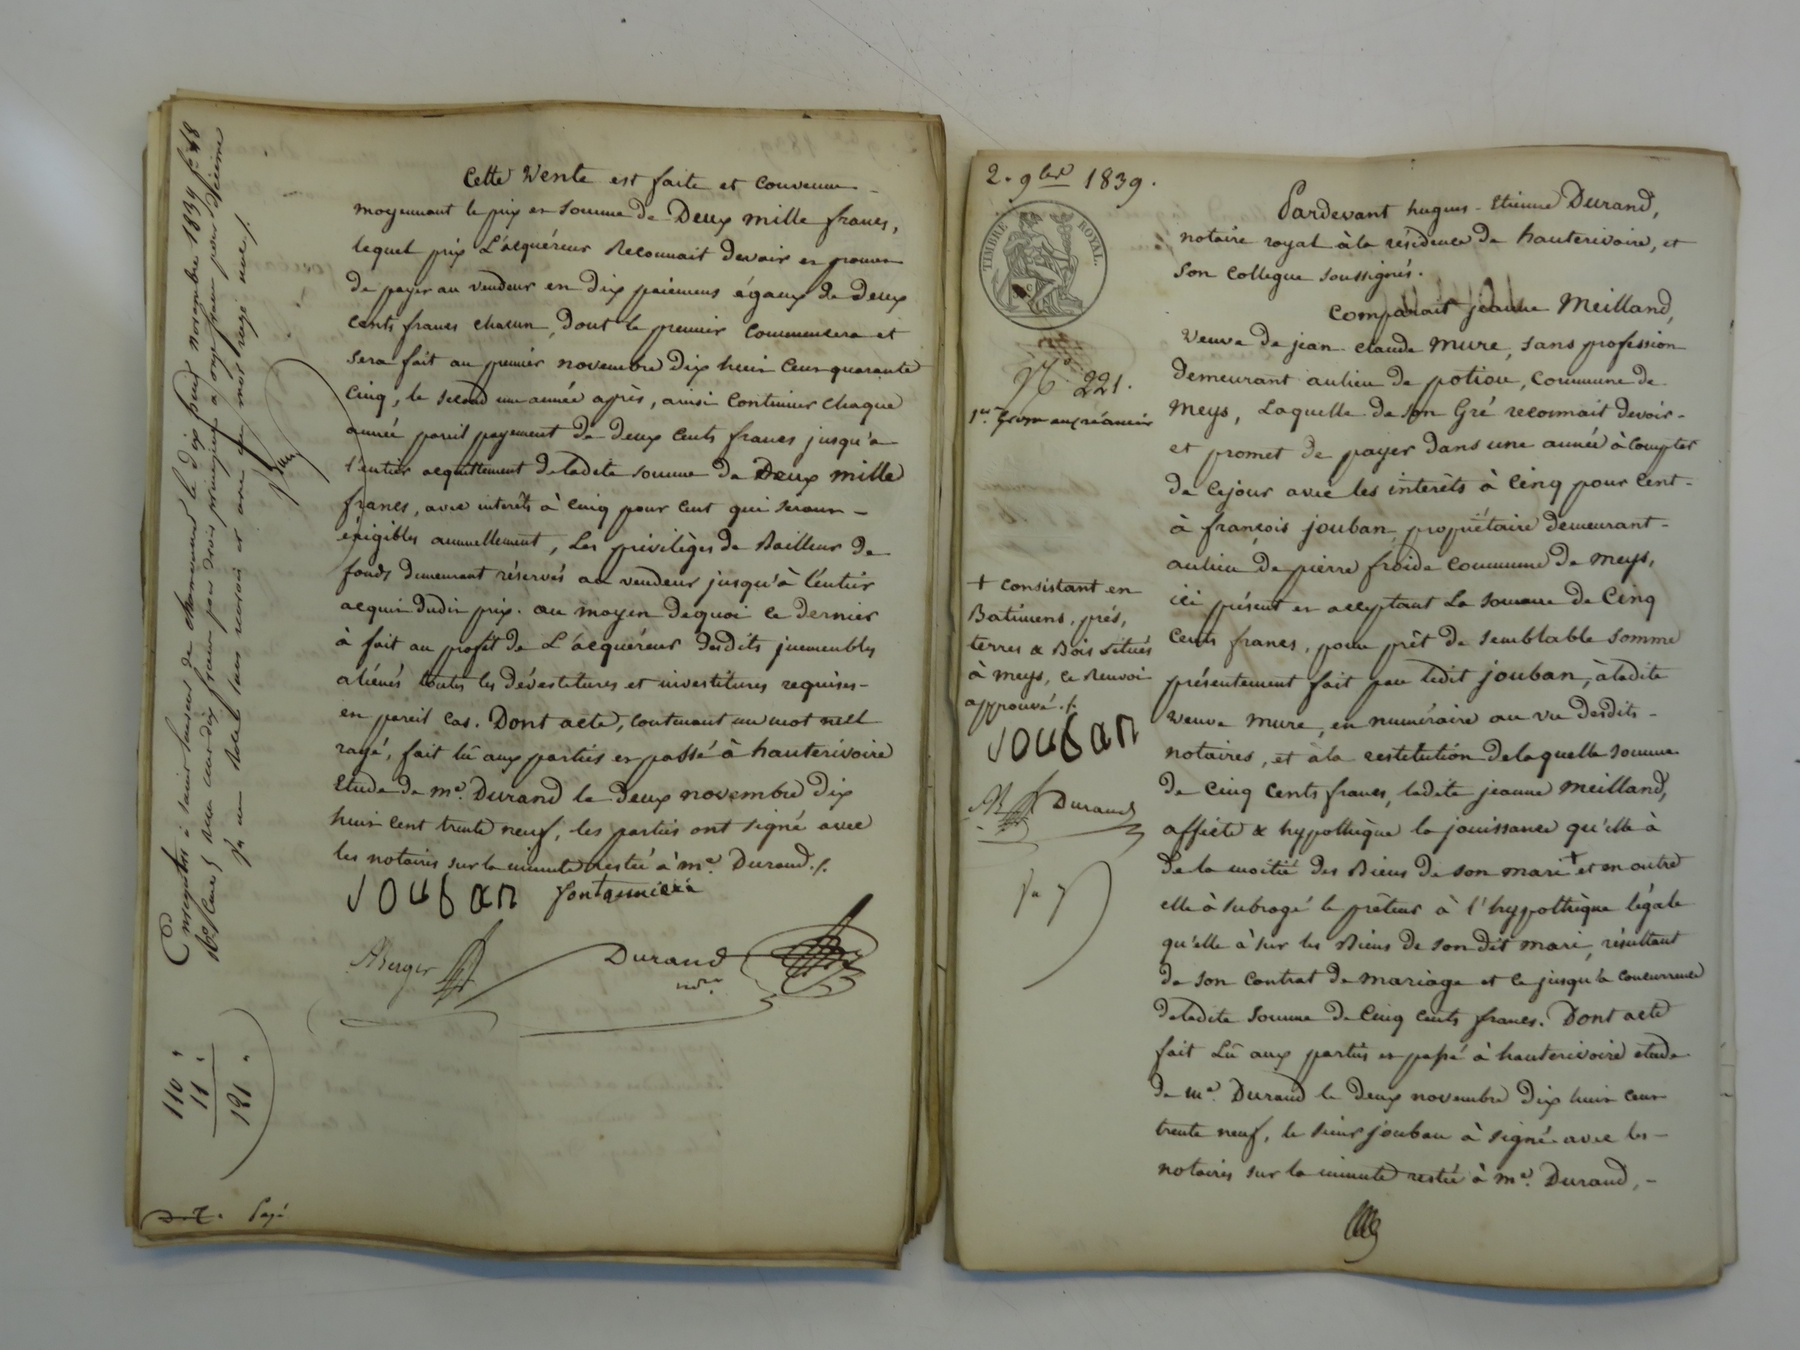 Cette Vente est faite et convenue
moyennant le prix et somme de Deux mille francs,
lequel prix L'acquéreur Reconnait devoir et promet
de payer au vendeur en dix paiemens égaux de deux
cents francs chacun, dont le premier commencera et
sera fait au premier novembre dix huit cent quarante
Cinq, le second une année après, ainsi continuer chaque
année pareil payement de deux cents francs jusqu'a
l'entier acquittement deladite somme de Deux mille
francs, avec intérêts à cinq pour cent qui seront
exigibles annuellement, Les privilèges de Bailleur de
fonds demeurant réservés au vendeur jusqu'à l'entier
acquit dudit prix. au moyen dequoi ce dernier
à fait au profit de L'acquéreur desdits immeubles
aliénés toutes les dévestitures et investitures requises
en pareil cas. Dont acte, contenant un mot nul
rayé, fait lû aux parties et passé à hauterivoire
Etude de me. Durand le deux novembre dix
huit cent trente neuf, les parties ont signé avec
les notaires sur la minute restée à me. Durand ./.
Jouban
ABerger Durand nore
110 "
11 "
121 "
payé
2. 9bre 1839.
TIMBRE ROYAL.
No 221.
1re Grosse au créancier
Pardevant hugues-Etienne Durand,
notaire royal à la résidence de hauterivoire, et
son collegue soussignés.
Comparait jeanne Meilland,
Veuve de jean claude mure, sans profession
demeurant aulieu de potiou, commune de
Meys, Laquelle de son Gré reconnait devoir
et promet de payer dans une année à compter
de cejour avec les interêts à cinq pour Cent
à françois jouban, propriétaire demeurant
aulieu de pierre froide commune de Meys,
ici présent et acceptant La somme de Cinq
Cents francs, pour prêt de semblable somme
présentement fait par ledit jouban, àladite
Veuve mure, en numéraire au vu desdits
notaires, et àla restitution delaquelle somme
de Cinq Cents francs, ladite jeanne Meilland,
affecte & hypothèque la jouissance qu'elle à
de la moitié des Biens de son mari + et en outre
elle à subrogé le prêteur à l'hypothèque légale
qu'elle à sur les Biens de son dit mari, résultant
de son contrat de mariage et ce jusqu'à concurrence
deladite somme de Cinq cents francs. Dont acte
fait Lû aux parties et passé à hauterivoire etude
de me. Durand le deux novembre dix huit cent
trente neuf, le sieur jouban à signé avec les
notaires sur la minute restée à me. Durand,
+ consistant en
Batimens, prés,
terres & Bois situés
à meys, ce Renvoi
approuvé ./.
Jouban
Durand